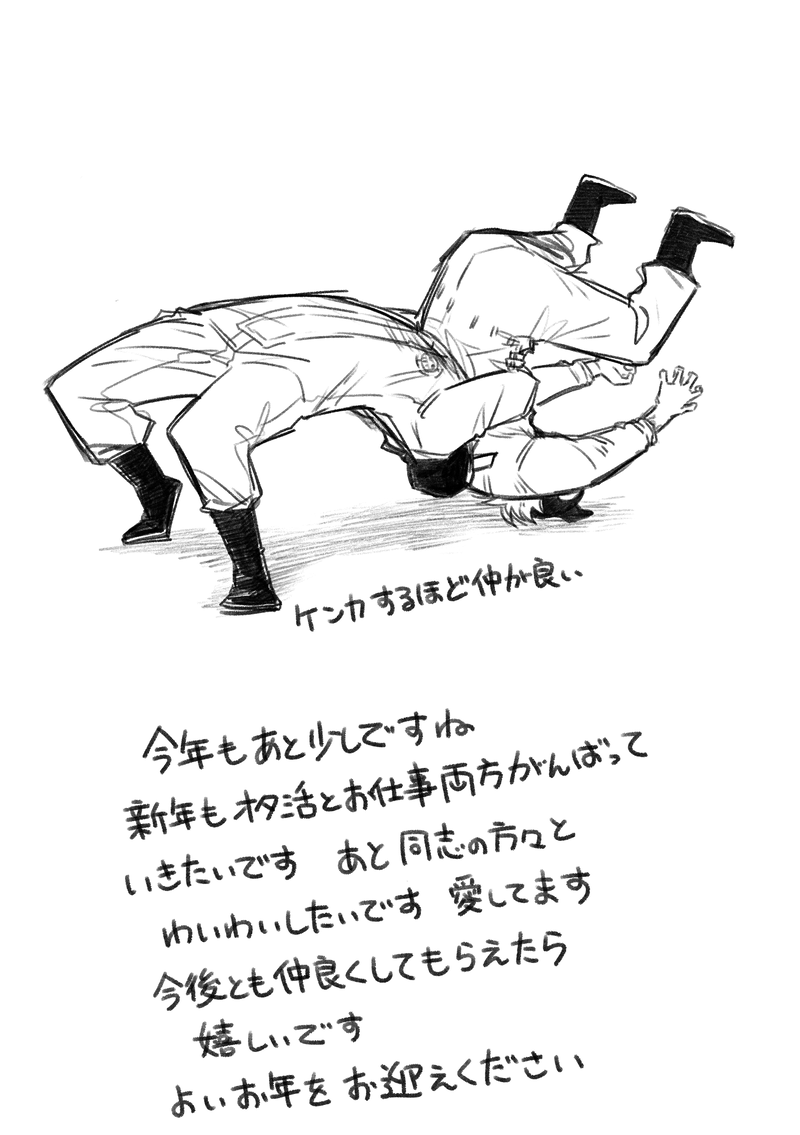 ケンカするほど仲が良い
今年もあと少しですね
新年もオタ活とお仕事両方がんばって
いきたいです あと同志の方々と
わいわいしたいです 愛してます
今後とも仲良くしてもらえたら
嬉しいです
よいお年をお迎えください